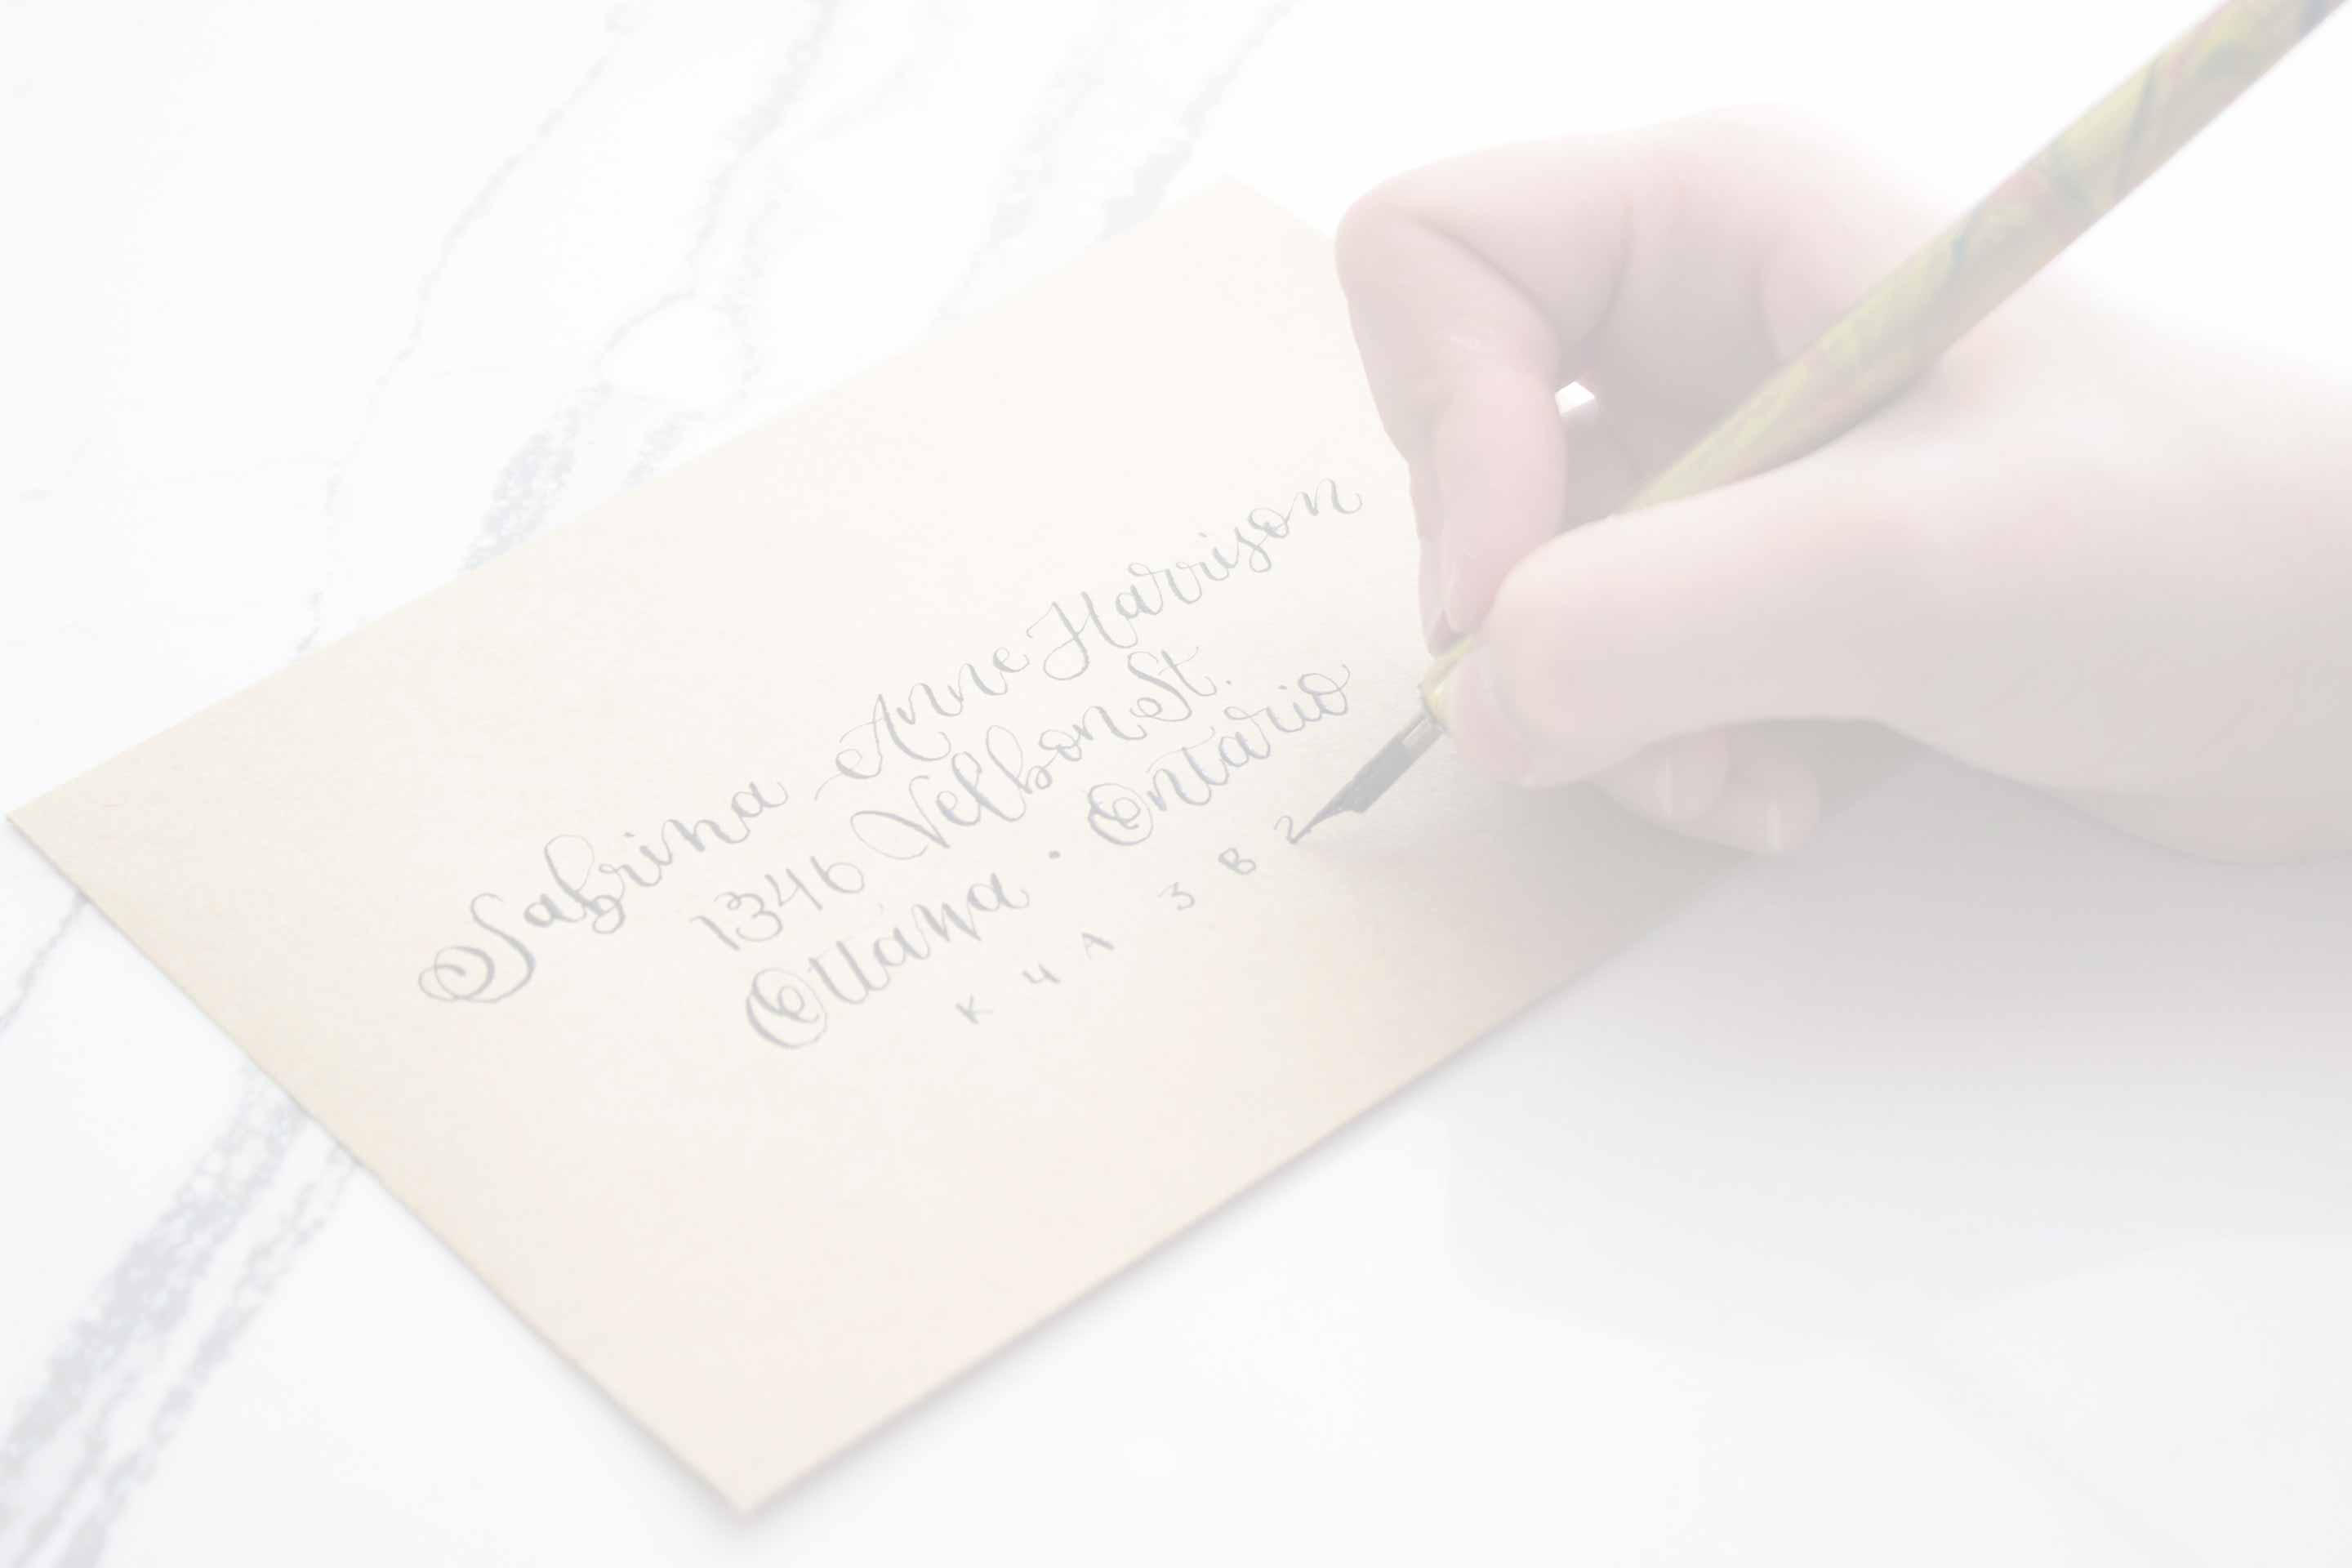 Sabrina Anne Harrison
1346 Velbon St.
Ottawa · Ontario
K 4 A 3 B 2